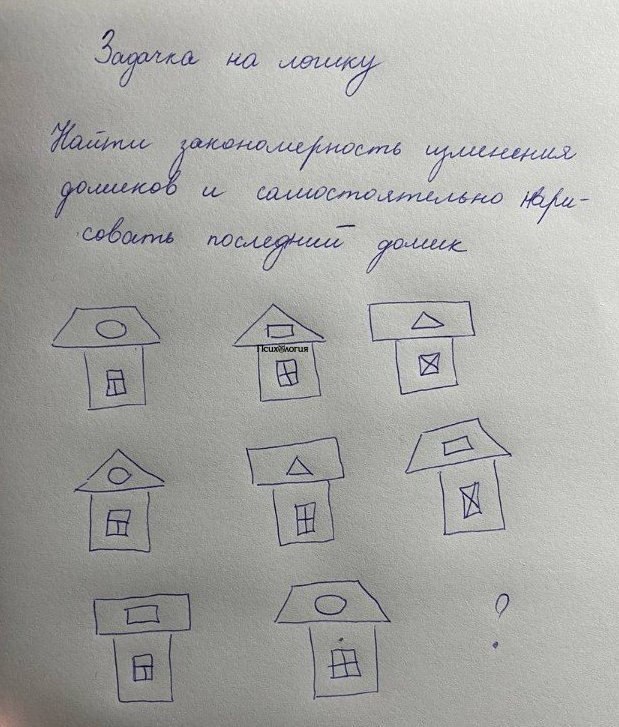 Задачка на логику
Найти закономерность изменения
домиков и самостоятельно нари-
совать последний домик
Психология
?